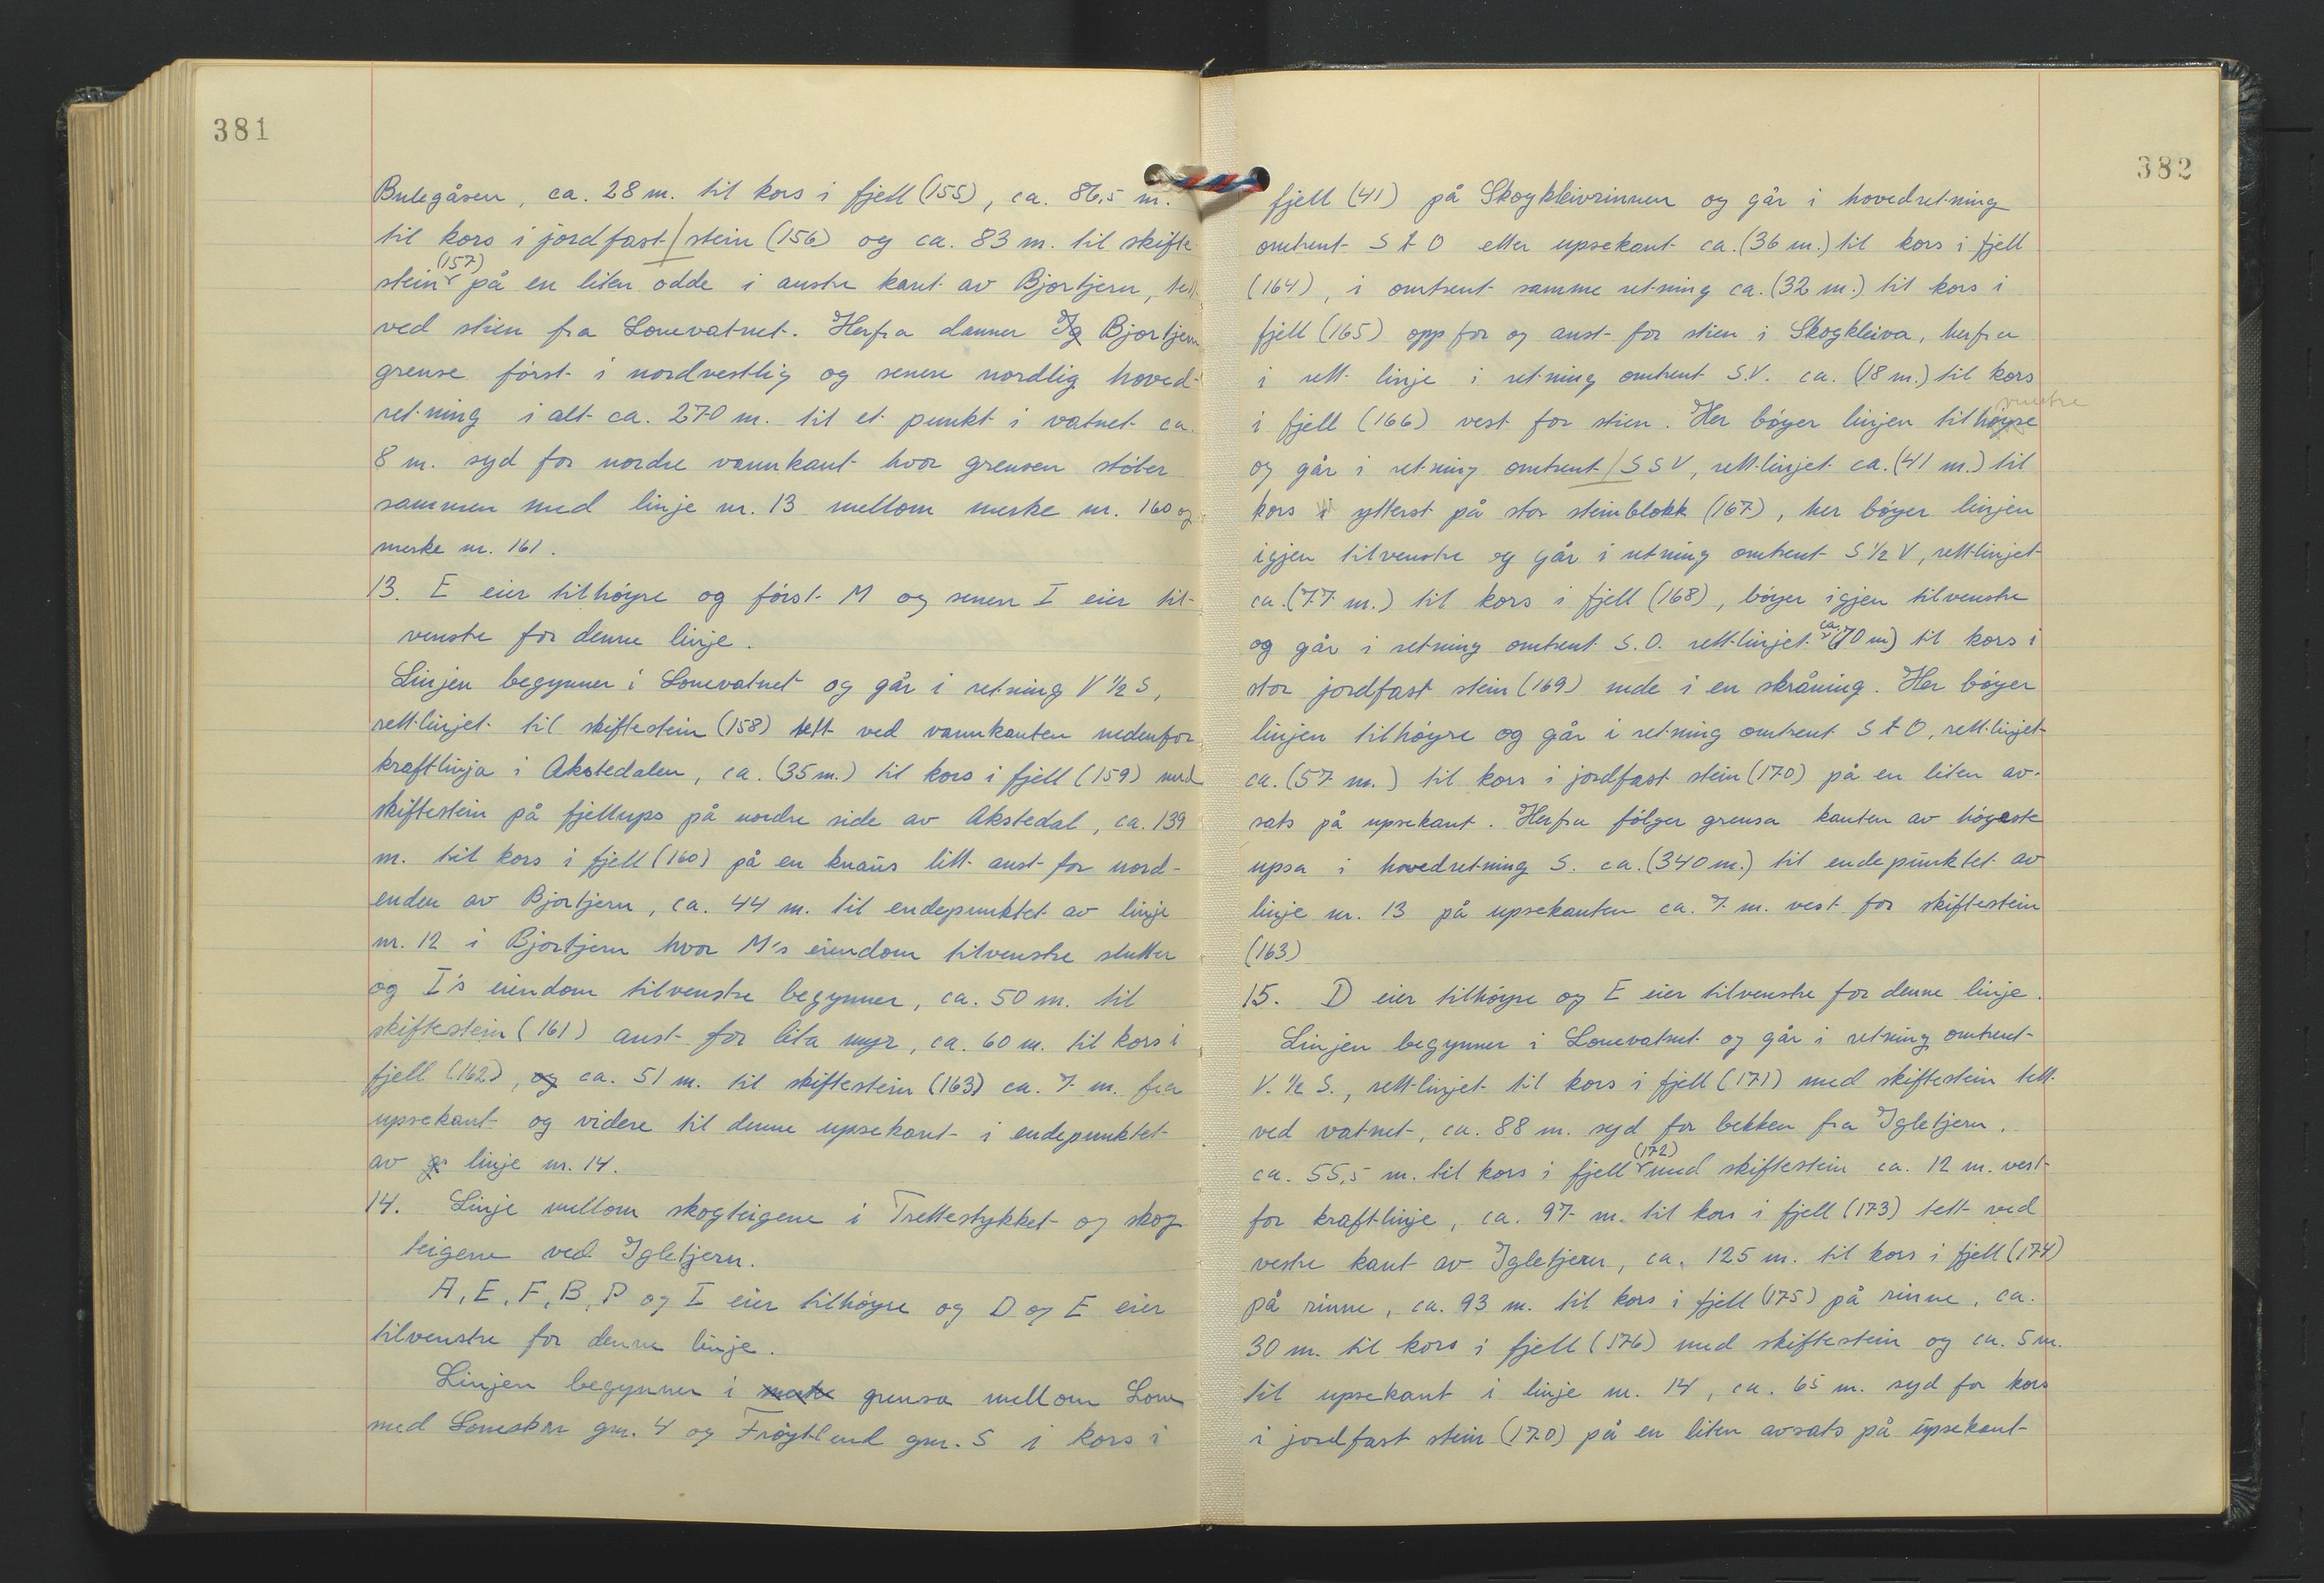 381
Bulegåsen, ca. 28 m. til kors i fjell (155), ca. 86,5 m.
til kors i jordfast/stein (156) og ca. 83 m. til skifte
stein (157) på en liten odde i austre kant av Bjortjern, tett
ved stien fra Lonevatnet. Herfra danner Ig Bjortjern
grense først i nordvestlig og senere nordlig hoved-
retning i alt ca. 270 m. til et punkt i vatnet ca.
8 m. syd for nordre vannkant hvor grensen støter
sammen med linje nr. 13 mellom merke nr. 160 og
merke nr. 161.
13. E eier tilhøyre og først M og senere I eier til-
venstre for denne linje.
Linjen begynner i Lonevatnet og går i retning V ½ S,
rettlinjet til skiftestein (158) tett ved vannkanten nedenfor
kraftlinja i Akstedalen, ca. (35 m.) til kors i fjell (159) med
skiftestein på fjellups på nordre side av Akstedal, ca. 139
m. til kors i fjell (160) på en knaus litt aust for nord-
enden av Bjortjern, ca. 44 m. til endepunktet av linje
nr. 12 i Bjortjern hvor M's eiendom tilvenstre slutter
og I's eiendom tilvenstre begynner, ca. 50 m. til
skiftestein (161) aust for lita myr, ca. 60 m. til kors i
fjell (162), og ca. 51 m. til skiftestein (163) ca. 7 m. fra
upsekant og videre til denne upsekant i endepunktet
av linje nr. 14.
14. Linje mellom skogteigene i Trettestykket og skog
teigene ved Igletjern.
A, E, F, B, P og I eier tilhøyre og D og E eier
tilvenstre for denne linje.
Linjen begynner i grensa mellom Lone
med Loneskar gnr. 4 og Frøytlend gnr. 5 i kors i
382
fjell (41) på Skogkleivrinnen og går i hovedretning
omtrent S t O etter upsekant ca. (36 m.) til kors i fjell
(164), i omtrent samme retning ca. (32 m.) til kors i
fjell (165) opp for og aust for stien i Skogkleiva, herfra
i rett linje i retning omtrent S.V. ca. (18 m.) til kors
i fjell (166) vest for stien. Her bøyer linjen tilhøyre venstre
og går i retning omtrent/SSV, rettlinjet ca. (41 m.) til
kors i ytterst på stor steinblokk (167), her bøyer linjen
igjen tilvenstre og går i retning omtrent S ½ V, rettlinjet
ca. (77 m.) til kors i fjell (168), bøyer igjen tilvenstre
og går i retning omtrent S.O. rettlinjet ca. (70 m) til kors i
stor jordfast stein (169) nede i en skråning. Her bøyer
linjen tilhøyre og går i retning omtrent S t O, rettlinjet
ca. (57 m.) til kors i jordfast stein (170) på en liten av-
sats på upsekant. Herfra følger grensa kanten av høgaste
upsa i hovedretning S. ca. (340 m.) til endepunktet av
linje nr. 13 på upsekanten ca. 7 m. vest for skiftestein
(163)
15. D eier tilhøyre og E eier tilvenstre for denne linje.
Linjen begynner i Lonevatnet og går i retning omtrent
V. ½ S., rettlinjet til kors i fjell (171) med skiftestein tett
ved vatnet, ca. 88 m. syd for bekken fra Igletjern.
ca. 55,5 m. til kors i fjell (172) med skiftestein ca. 12 m. vest
for kraftlinje, ca. 97 m. til kors i fjell (173) tett ved
vestre kant av Igletjern, ca. 125 m. til kors i fjell (174)
på rinne, ca. 93 m. til kors i fjell (175) på rinne, ca.
30 m. til kors i fjell (176) med skiftestein og ca. 5 m.
til upsekant i linje nr. 14, ca. 65 m. syd for kors
i jordfast stein (170) på en liten avsats på upsekant